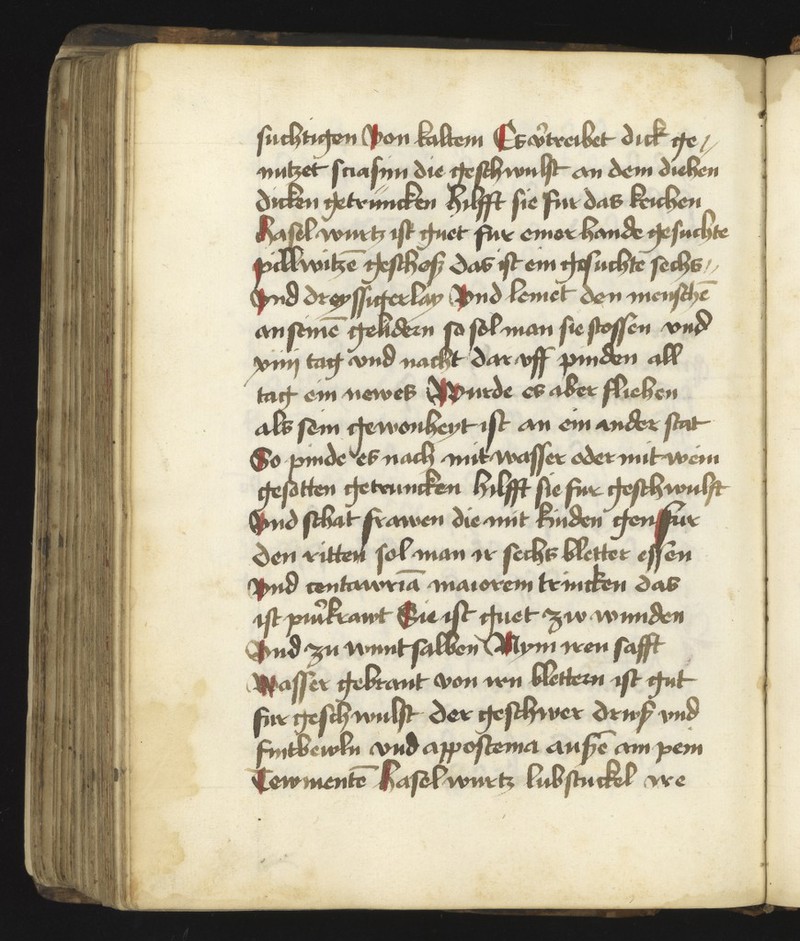 suchtigen Von kaltem Es v̄treibet dick ge⸗
nutzet sciasim die geschwulst an dem diehen
dicken getruncken hilfft sie fur das keichen
haselwurtz ist guet fur einer hande gesuchte
pillwitzē geschoß das ist ein gesuchte sechs⸗
Vnd dreyssigerlay Vnd lemet den menschē
an seinē gelidern so sol man sie stossen vnd
viiij tag vnd nacht dar vff pinden all
tag ein newes Wurde es aber fliehen
als sein gewonheyt ist an ein ander stat
So pinde es nach mit wasser oder mit wein
gesotten getruncken hilfft sie fur geschwulst
Vnd schat frawen die mit kinden gen fur
den ritten sol man ir sechs bletter essen
Vnd centawriā maiorem trincken das
ist pin̄krawt Sie ist guet zw wunden
Vnd zu wunt salben Nym iren safft
Wasser gebrant von irn blettern ist gut
fur geschwulst der geschwer druß vnd
vnd appostema außē am pein
haselwurtz lubstuckel we